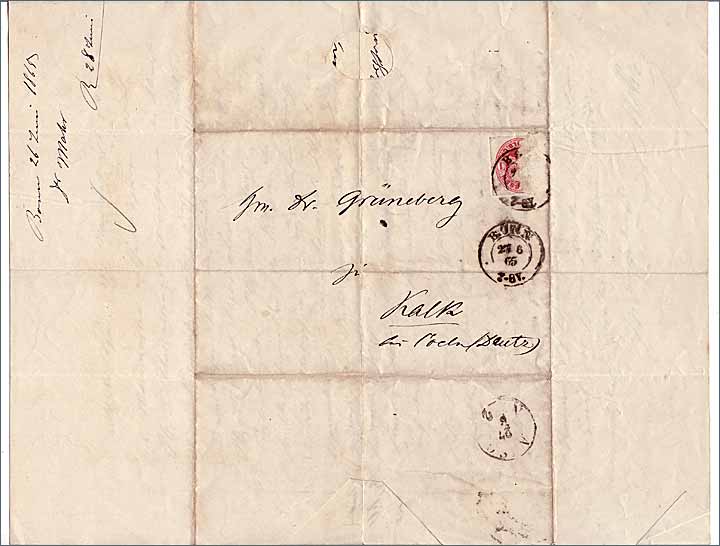 Bonn 26 Juni 1865
Dr Mohr
R 28 Juni
Hrn. Dr. Grüneberg
zu
Kalk
bei Coeln (Deutz)
BONN
27 6
65
2-8V.